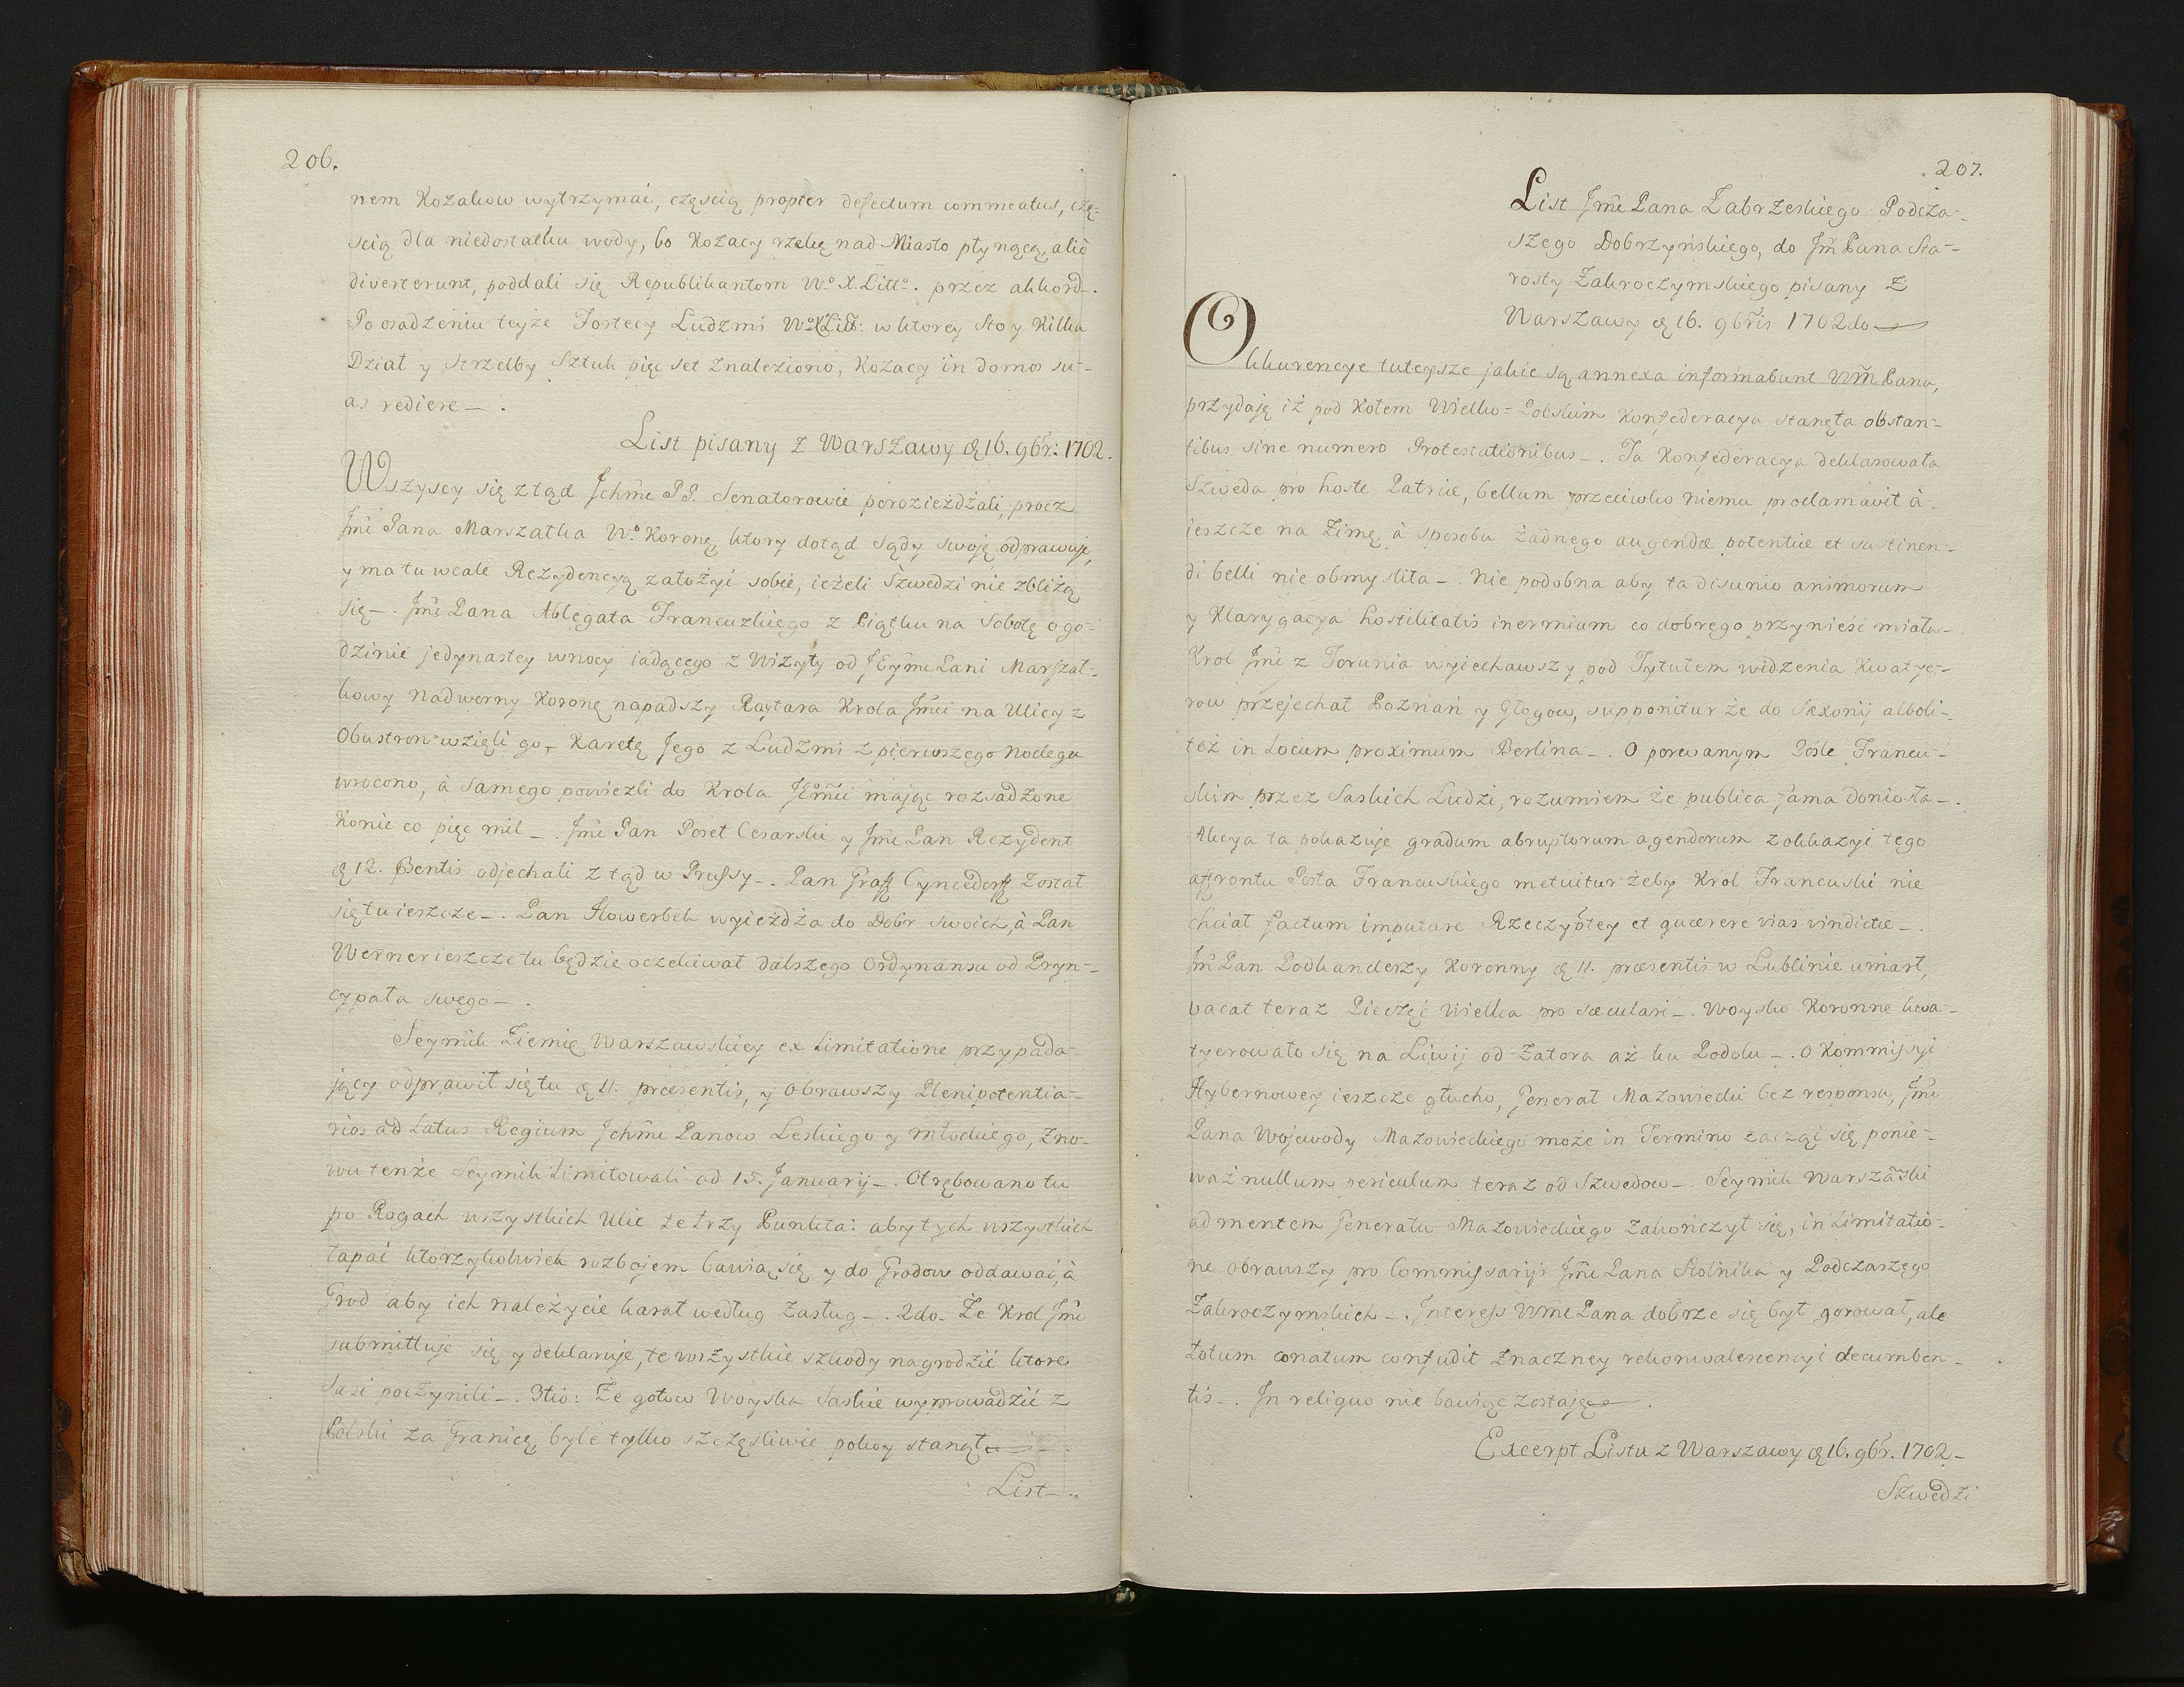 206.
nem Kozakow wytrzymać, częscią propter defectum commeatus, czę-
scią dla niedostatku wody, bo Kozacy rzekę nad Miasto płynącą, alić
diverterunt, poddali się Republikantom Wo. X. Litto. przez akkord-.
Po osadzeniu teyże Fortecy Ludzmi Wo X Litt: w ktorey Sto y Kilka
Dział y Strzelby Sztuk pięc set znaleziono, Kozacy in domos su-
as rediere-.
List pisany z Warszawy d 16. 9br: 1702.
Wszyscy się ztąd Jchmc PP. Senatorowie porozieżdżali, procz
Jmci Pana Marszałka Wo. Koronę, ktory dotąd Sądy swoję odprawuje,
y ma tu wcale Rezydencyą założyć sobie, ieżeli Szwedzi nie zbliżą
się-. Jmci Pana Ablegata Francuzkiego z Piątku na Sobotę o go-
dzinie jedynastey w nocy iadącego z Wizyty od JEymci Pani Marszał-
kowy Nadworny Koronę napadszy Raytara Krola Jmci na Ulicy z
Obustron wzięli go, Karetę Jego z Ludzmi z pierwszego noclegu
wrocono, à samego powiezli do Krola JEomci mając rozsadzone
Konie co pięc mil-. Jmc Pan Poseł Cesarski y Jmc Pan Rezydent
d 12. Pentis odjechali ztąd w Prussy-. Pan Graff Cyncedorff został
się tu ieszcze-. Pan Howerbek wyieżdża do Dobr swoich, à Pan
Werner ieszcze tu będzie oczekiwał dalszego Ordynansu od Pryn-
cypała swego-.
Seymik Ziemię Warszawskiey ex Limitatione przypada-
jący odprawił się tu d 11. præsentis, y obrawszy Plenipotentia-
rios ad Latus Regium Jchmc Panow Leskiego y Młockiego, zno-
wu tenże Seymik limitowali ad 15. Januarij-. Otrębowano tu
po Rogach wszystkich Ulic te trzy Punkta: aby tych wszystkich
łapać ktorzykolwiek rozbojem bawią się y do Grodow oddawać, à
Grod aby ich należycie karał według Zasług-. 2do. Że Krol Jmc
submittuje się y deklaruje, te wszystkie szkody nagrodzić ktore
Sasi poczynili-. 3tio: Że gotow Woyska Saskie wyprowadzić z
Polski za Granicę, byle tylko szczęsliwie pokoy stanął
List-.
207.
List Jmc Pana Zabrzeskiego Podcza-
szego Dobrzyńskiego, do Jm Pana Sta-
rosty Zakroczymskiego pisany z
Warszawy d 16. 9bris 1702do
Okkurencye tuteysze jakie są annexa informabunt Wm Pana,
przydaję iż pod Kołem Wielko-Polskim Konfederacya stanęła obstan-
tibus sine numero Protestationibus-. Ta Konfederacya deklarowała
Szweda pro hoste Patriæ, bellum przeciwko niemu proclamavit à
ieszcze na Zimę, à sposobu żadnego augendæ potentiæ et sustinen-
di belli nie obmyslita-. Nie podobna aby ta disunio animorum
y Klarygacya hostilitatis inermium co dobrego przynieść miała-.
Krol Jmc z Torunia wyiechawszy pod Tytułem widzenia Kwatye-
row przejechał Poznań y Głogow, supponitur że do Saxonij alboli-
też in Locum proximum Berlina-. O porwanym Posle Francu-
skim przez Saskich Ludzi, rozumiem że publica fama doniosła-.
Akcya ta pokazuje gradum abruptorum agendorum z okkazyi tego
affrontu Posła Francuskiego metuitur żeby Krol Francuski nie
chciał factum imputare Rzeczyptey et quærere vias vindictæ-.
Jm Pan Podkanclerzy Koronny d 11. præsentis w Lublinie umarł,
vacat teraz Pieczęć Wielka pro sæculari-. Woysko Koronne kwa-
tyerowało się na Liwij od Zatora aż ku Podolu-. O Kommissyi
Hybernowey ieszcze głucho, Generał Mazowiecki bez responsu, Jmc
Pana Wojewody Mazowieckiego może in Termino zacząć się ponie-
waż nullum periculum teraz od Szwedow-. Seymik Warszaski
ad mentem Generału Mazowieckiego zakończył się, in Limitatio-
ne obrawszy pro Commissarijs Jmc Pana Stolnika y Podczaszego
Zakroczymskich-. Interess Wmc Pana dobrze się był gorował, ale
totum conatum confudit znaczney rekonwalescencyi decumben-
tis-. In reliquo nie bawiąc zostaję-.
Excerpt Listu z Warszawy d 16. 9br. 1702-
Szwedzi